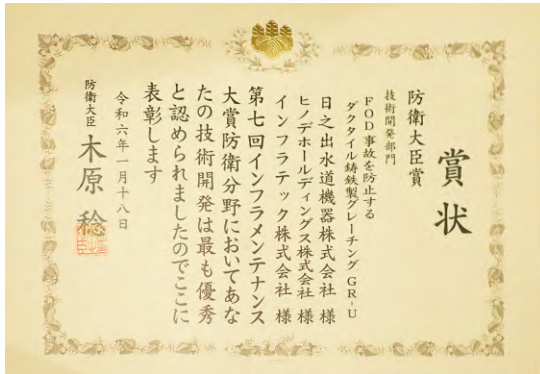 賞状
防衛大臣賞
技術開発部門
FOD事故を防止する
ダクタイル鋳鉄製グレーチング GR-U
日之出水道機器株式会社 様
ヒノデホールディングス株式会社 様
インフラテック株式会社 様
第七回インフラメンテナンス
大賞防衛分野においてあな
たの技術開発は最も優秀
と認められましたのでここに
表彰します
令和六年一月十八日
防衛大臣 木原 稔